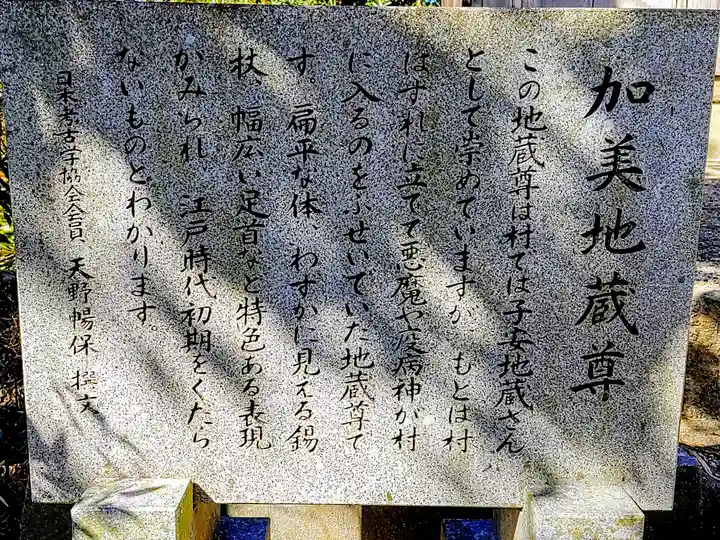 加美地蔵尊
この地蔵尊は村では子安地蔵さん
として崇めていますが、もとは村
はずれに立てて悪魔や疫病神が村
に入るのをふせいでいた地蔵尊で
す。扁平な体、わずかに見える錫
杖、幅広い足首など特色ある表現
がみられ、江戸時代初期をくだら
ないものとわかります。
日本考古学協会会員 天野暢保 撰文